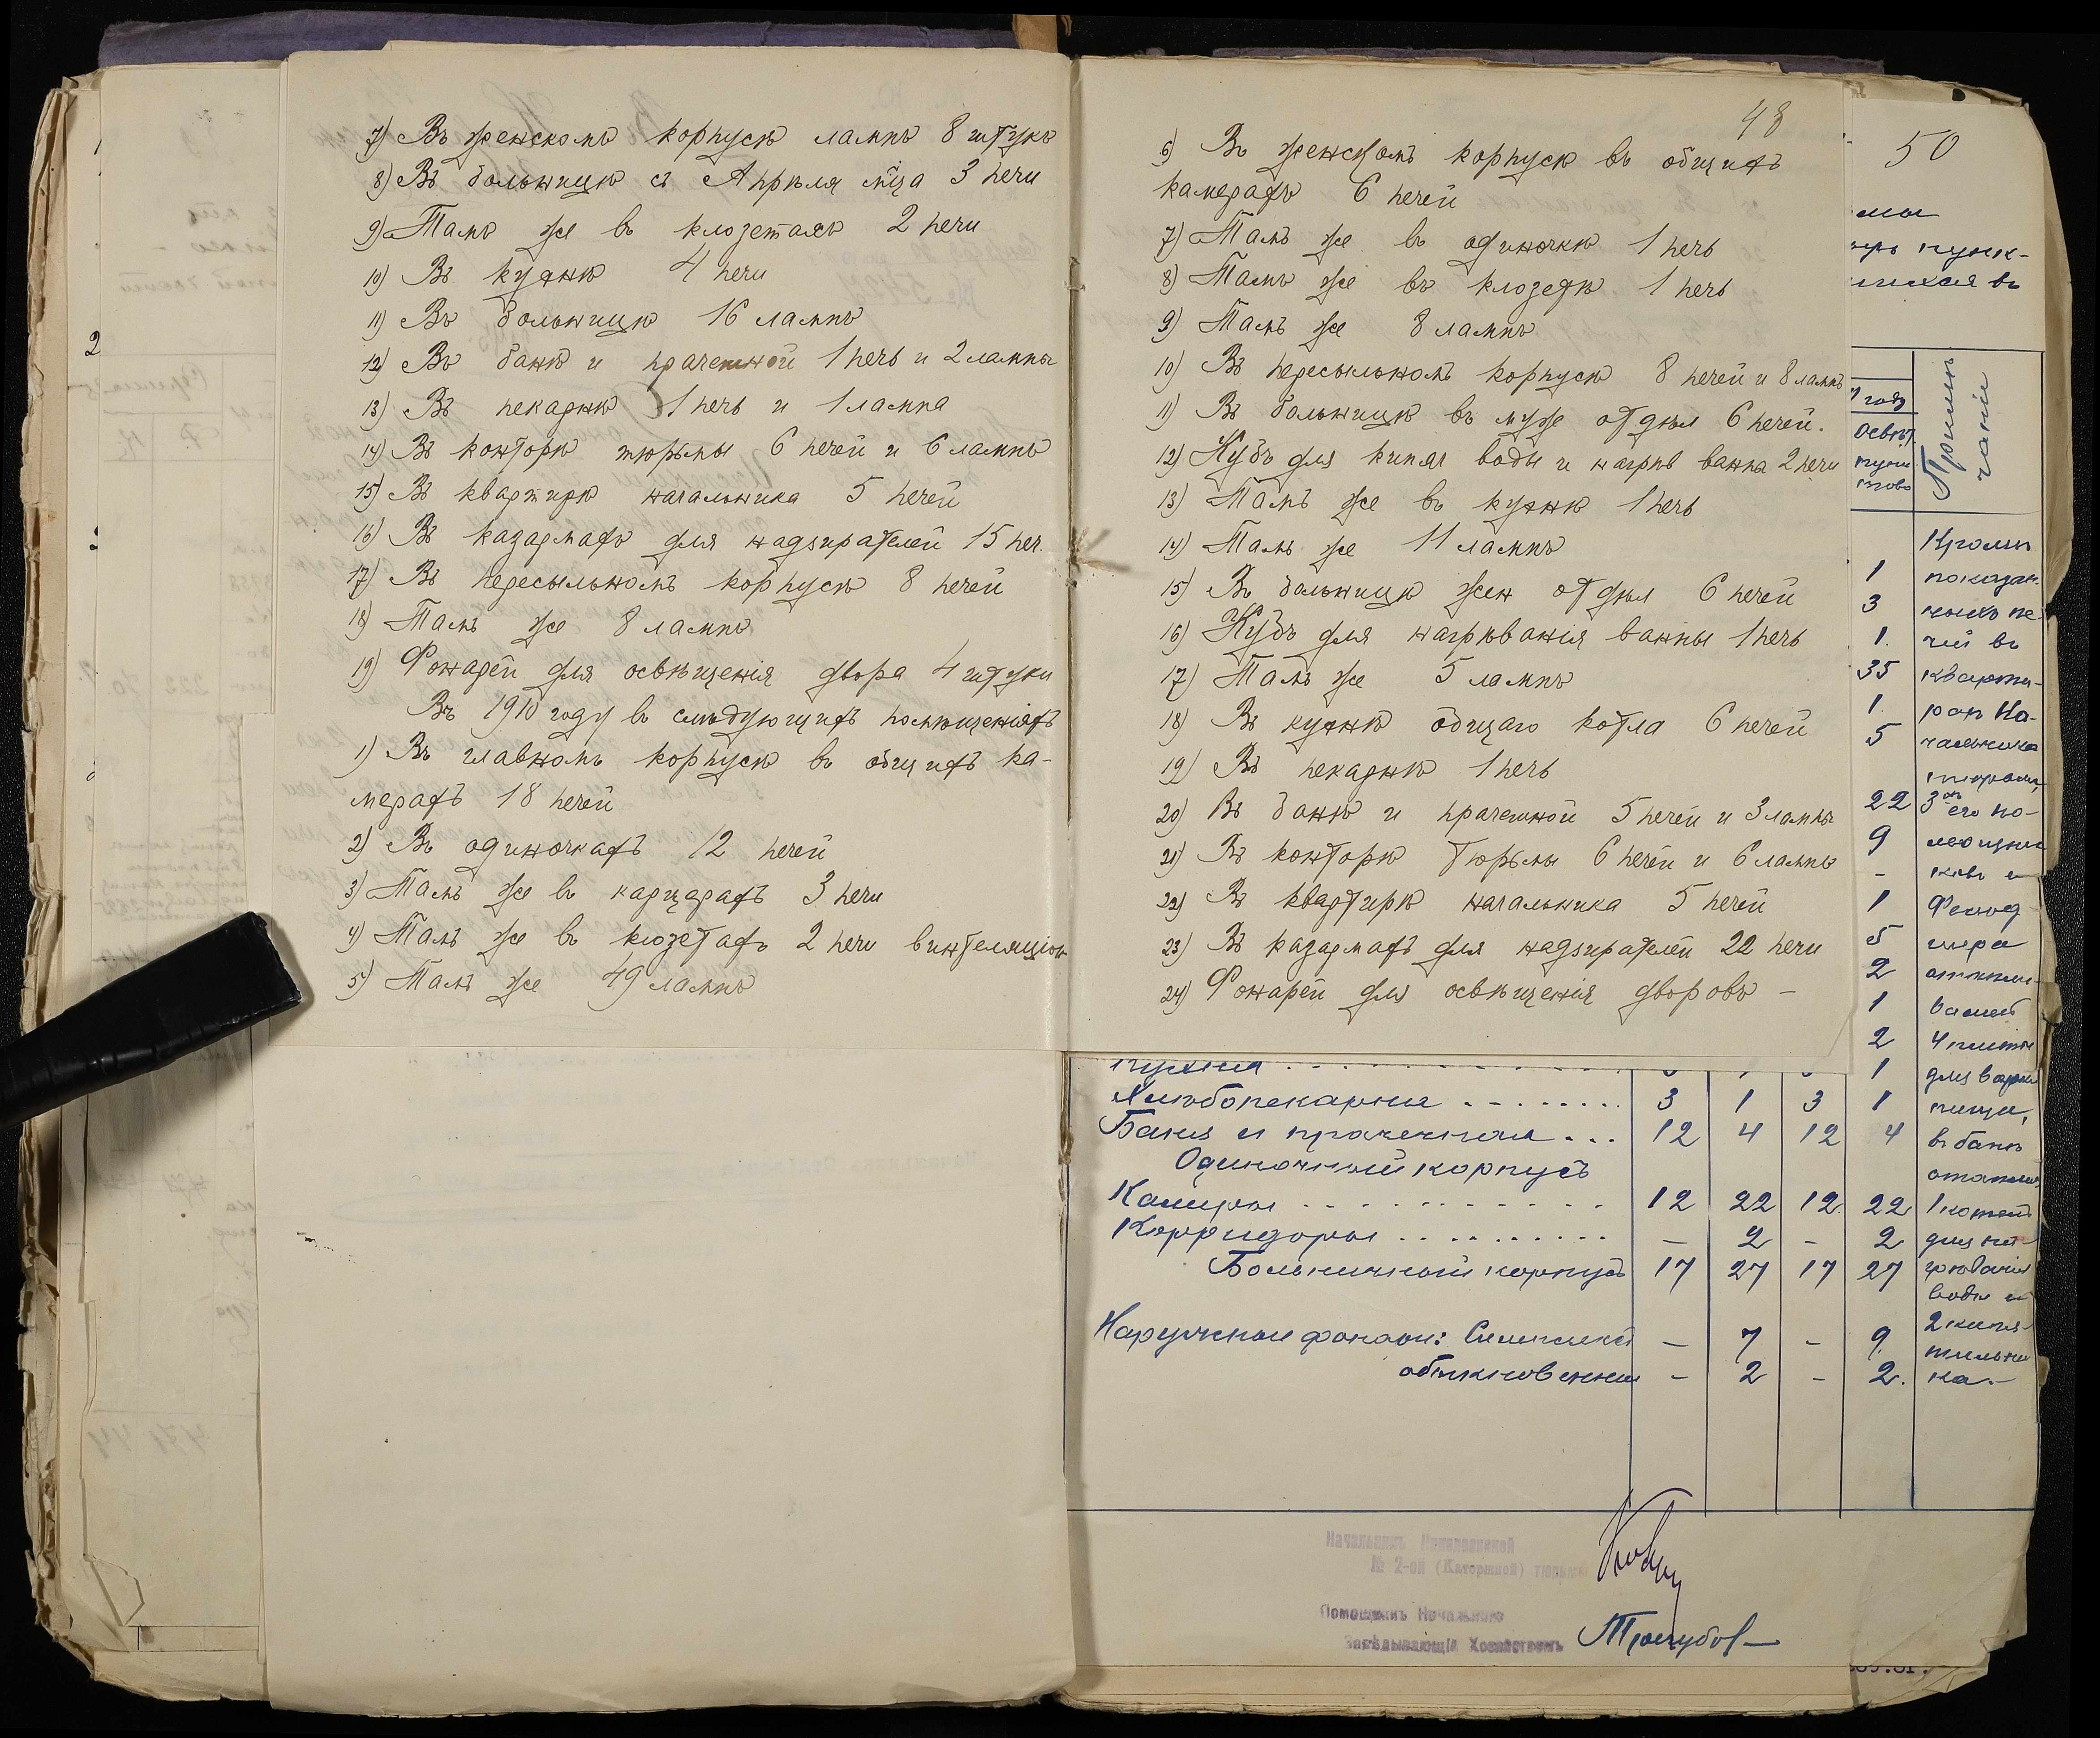 7) Въ женскомъ корпусѣ лампъ 8 штукъ
8) Въ больницѣ съ Апрѣля мѣца 3 печи
9) Тамъ же въ клозетахъ 2 печи
10) Въ кухнѣ 4 печи
11) Въ больницѣ 16 лампъ
12) Въ банѣ и прачешной 1 печь и 2 лампы
13) Въ пекарнѣ 1 печь и 1 лампа
14) Въ конторѣ тюрьмы 6 печей и 6 лампъ
15) Въ квартирѣ начальника 5 печей
16) Въ казармахъ для надзирателей 15 печ.
17) Въ пересыльномъ корпусѣ 8 печей
18) Тамъ же 8 лампъ
19) Фонарей для освѣщенія двора 4 штуки
Въ 1910 году въ слѣдующихъ помѣщеніяхъ
1) Въ главномъ корпусѣ въ общихъ ка-
мерахъ 18 печей
2) Въ одиночкахъ 12 печей
3) Тамъ же въ карцерахъ 3 печи
4) Тамъ же въ клозетахъ 2 печи винтеляціон
5) Тамъ же 49 лампъ
48
6) Въ женскомъ корпусѣ въ общихъ
камерахъ 6 печей
7) Тамъ же въ одиночкѣ 1 печь
8) Тамъ же въ клозетѣ 1 печь
9) Тамъ же 8 лампъ
10) Въ пересыльномъ корпусѣ 8 печей и 8 лампъ
11) Въ больницѣ въ муже отдѣл 6 печей.
12) Кубъ для кипяч воды и нагрѣв ванна 2 печи
13) Тамъ же въ кухнѣ 1 печь
14) Тамъ же 11 лампъ
15) Въ больницѣ жен отдѣл 6 печей
16) Кубъ для нагрѣванія ванны 1 печь
17) Тамъ же 5 лампъ
18) Въ кухнѣ общаго котла 6 печей
19) Въ пекарнѣ 1 печь
20) Въ банѣ и прачешной 5 печей и 3 лампы
21) Въ конторѣ тюрьмы 6 печей и 6 лампъ
22) Въ квартирѣ начальника 5 печей
23) Въ казармахъ для надзирателей 22 печи
24) Фонарей для освѣщенія дворовъ –
50
пунк-
въ
году
Освѣт.
пунк
товъ
Примѣ
чаніи
Кромѣ
1 показан-
3 ныхъ пе-
1. чей въ
35 кварти-
1. рахъ На-
5 чальника
тюрьмы,
22 3хъ его по-
9 мощни
- ковъ и
1
5
2
1
2 4 плиты
1 для варки
пищи,
Кухня
Хлѣбопекарня 3 1 3 1
Баня и прачечная 12 4 12 4 въ банѣ
Одиночный корпусъ
Камеры 12 22 12 22 1 котелъ
Корридоры – 2 – 2 для на-
Больничный корпусъ 17 27 17 27 грѣванія
воды и
Наружные фонари: – 7 – 9 2 кипя-
обыкновенные – 2 – 2. тильни
ка.-
Начальникъ Николаевской
№ 2-ой (Каторжной) тюрьмы
Помощникъ Начальника
Завѣдывающій Хозяйствомъ